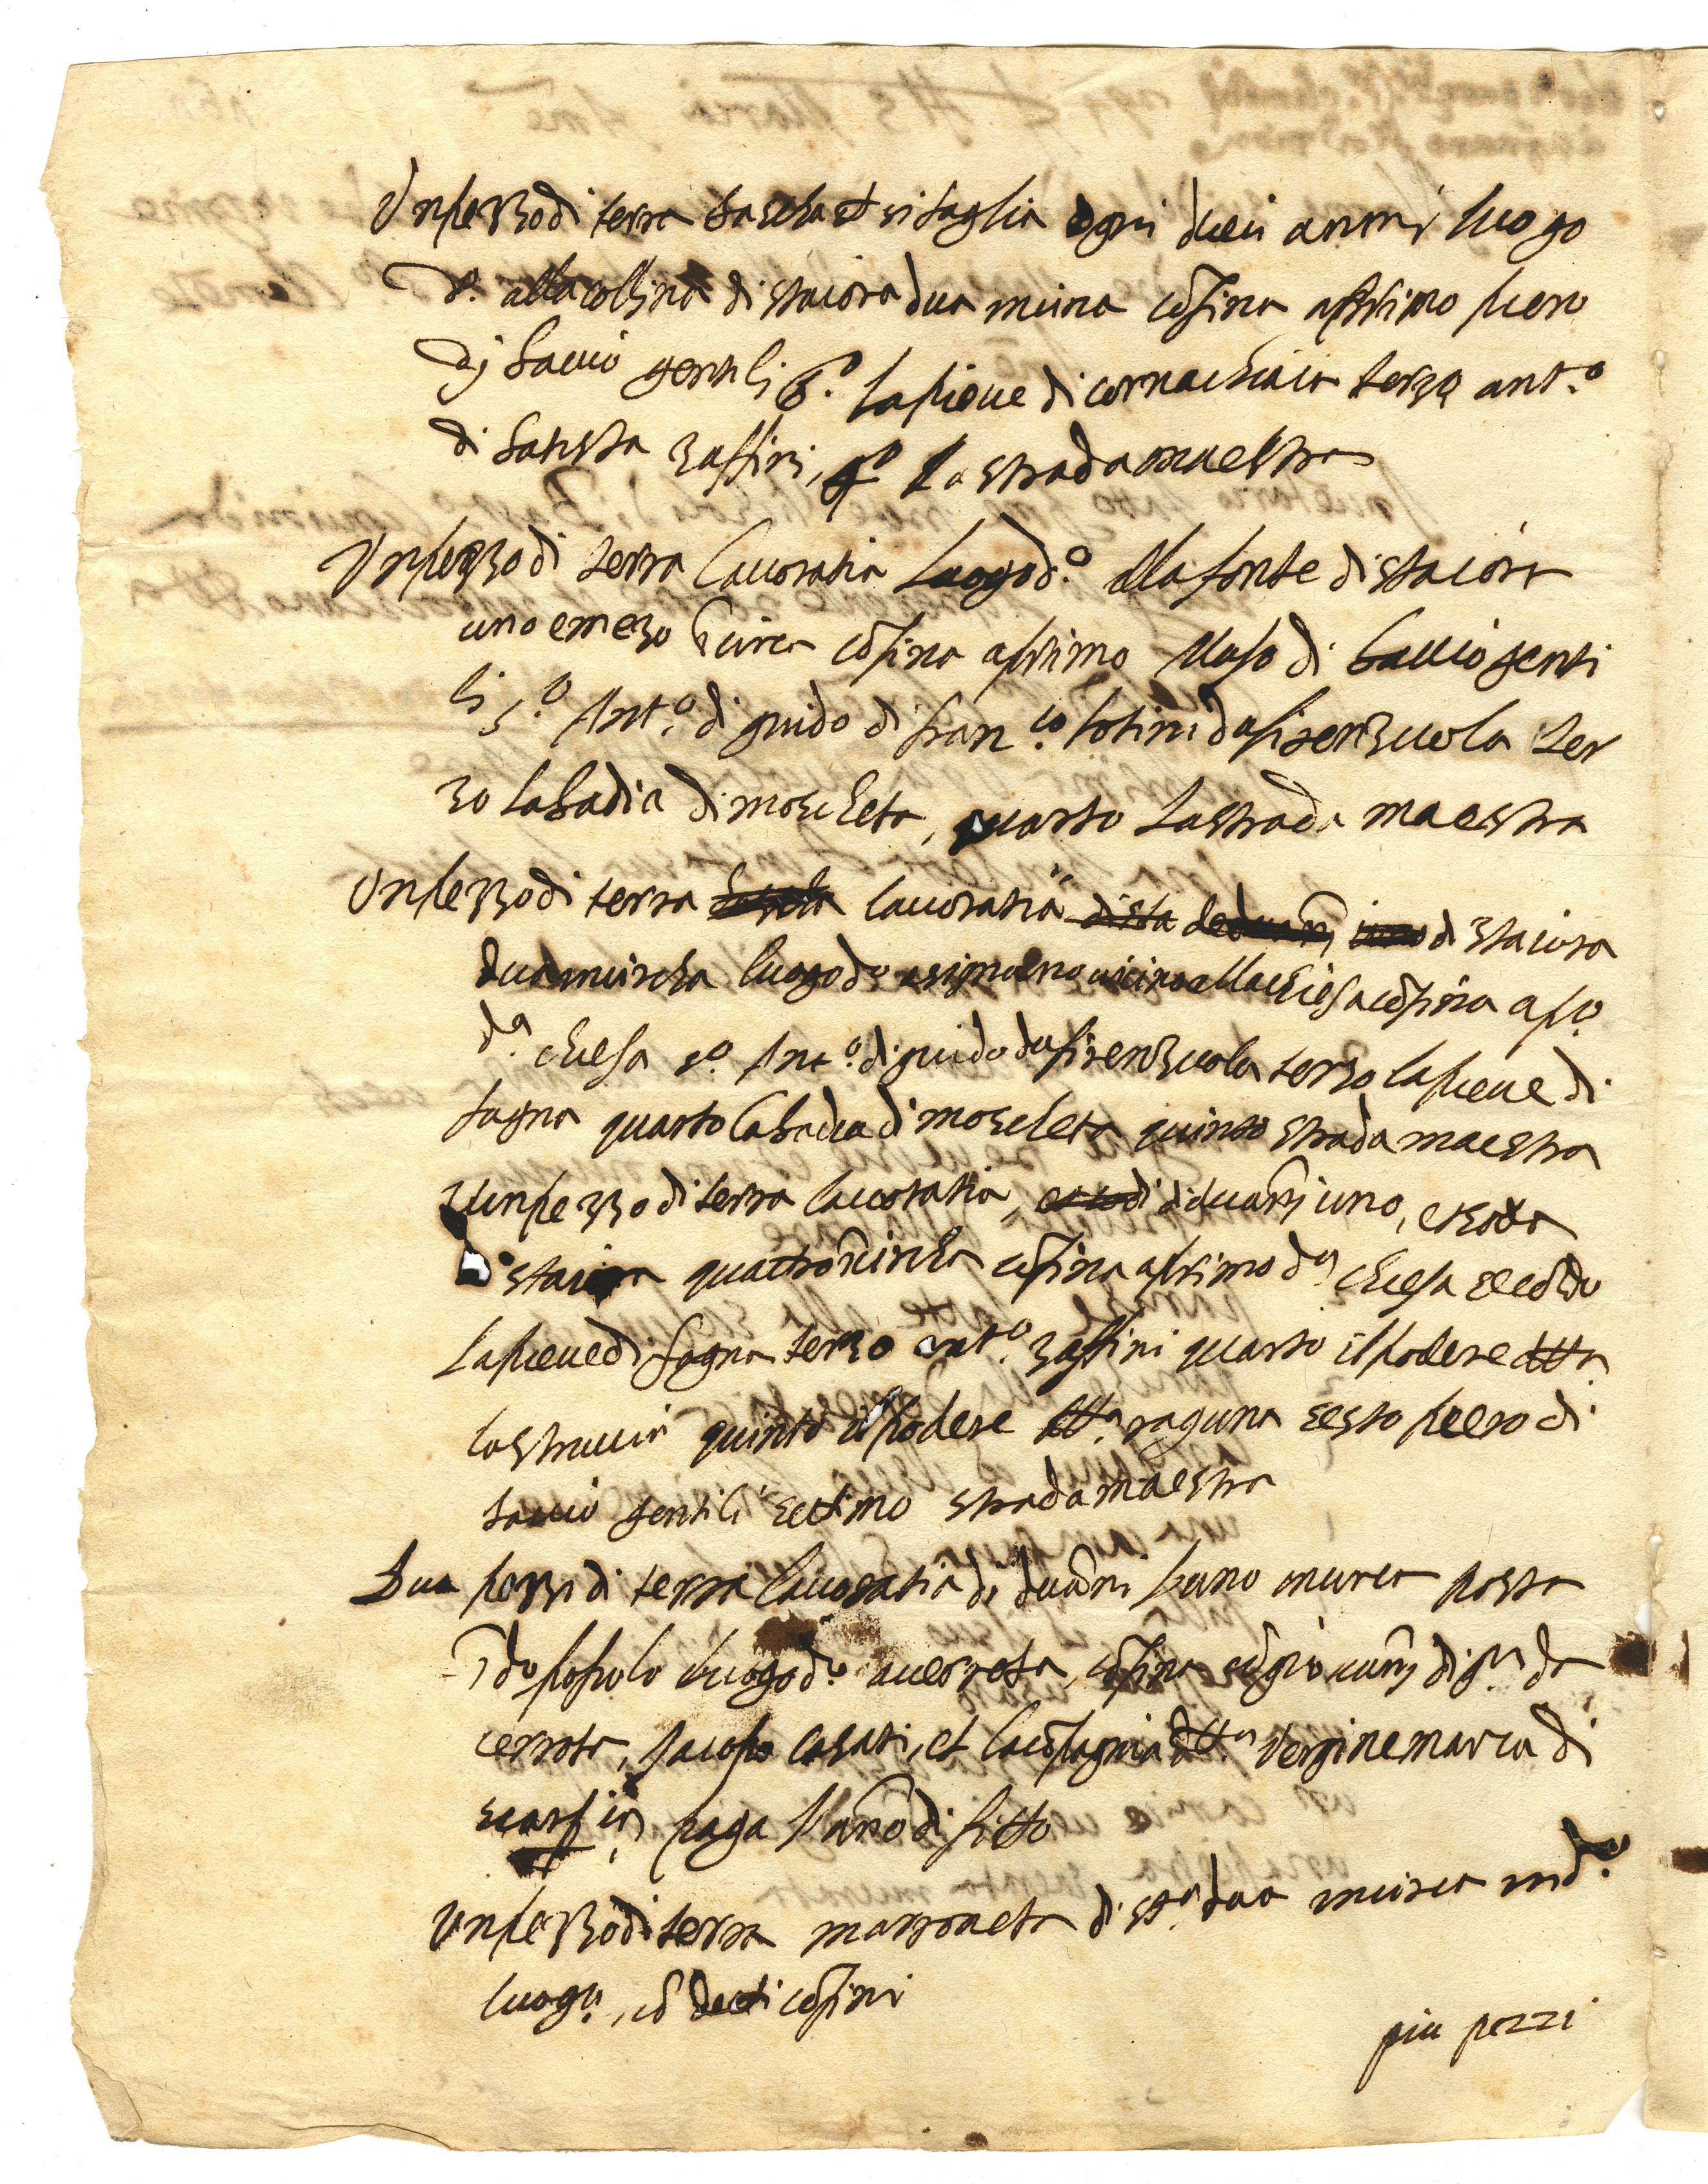 Un pezzo di terra boscha et si taglia ogni dieci anni luogo
d.º alla collina di staiora dua incirca cõfina a primo piero
di baccio gentili 2.º la pieve di cornachiaia terzo ant.º
di batista zaffiri, 4º la strada maestra
Un pezzo di terra lavoratia luogo d.º alla fonte di staioro
uno e mezo in circa cõfina a primo Maso di baccio genti
li s.º Ant.º di guido di fran.co totini da firenzuola ter
zo la badia di moscheta, quarto la strada maestra
Un pezzo di terra lavoratia di staiora
dua incircha luogo d.º vicino alla chiesa cõfina a p.º
d.ª chiesa s.º Ant.º di guido da firenzuola terzo la pieve di
fagna quarto la badia di moscheta quinto strada maestra
Un pezzo di terra lavoratia, uno,
di staiora quattro ĩcircha cõfina a primo d.ª chiesa secõdo
la pieve di fagna terzo ant.º zaffiri quarto il podere
quinto il podere sesto piero di
baccio gentili settimo strada maestra
Dua pezzi di terra lavoratia di staiora uno incirca posta
ĩ d.º popolo luogo d.º cõfina
cerreta, Jacopo et la cõpagnia vergine maria di
paga l'anno di fitto
Un pezzo di terra marroneta di st.ª dua incirca in d.º
luogo, cõ decti cõfini
piu pezzi